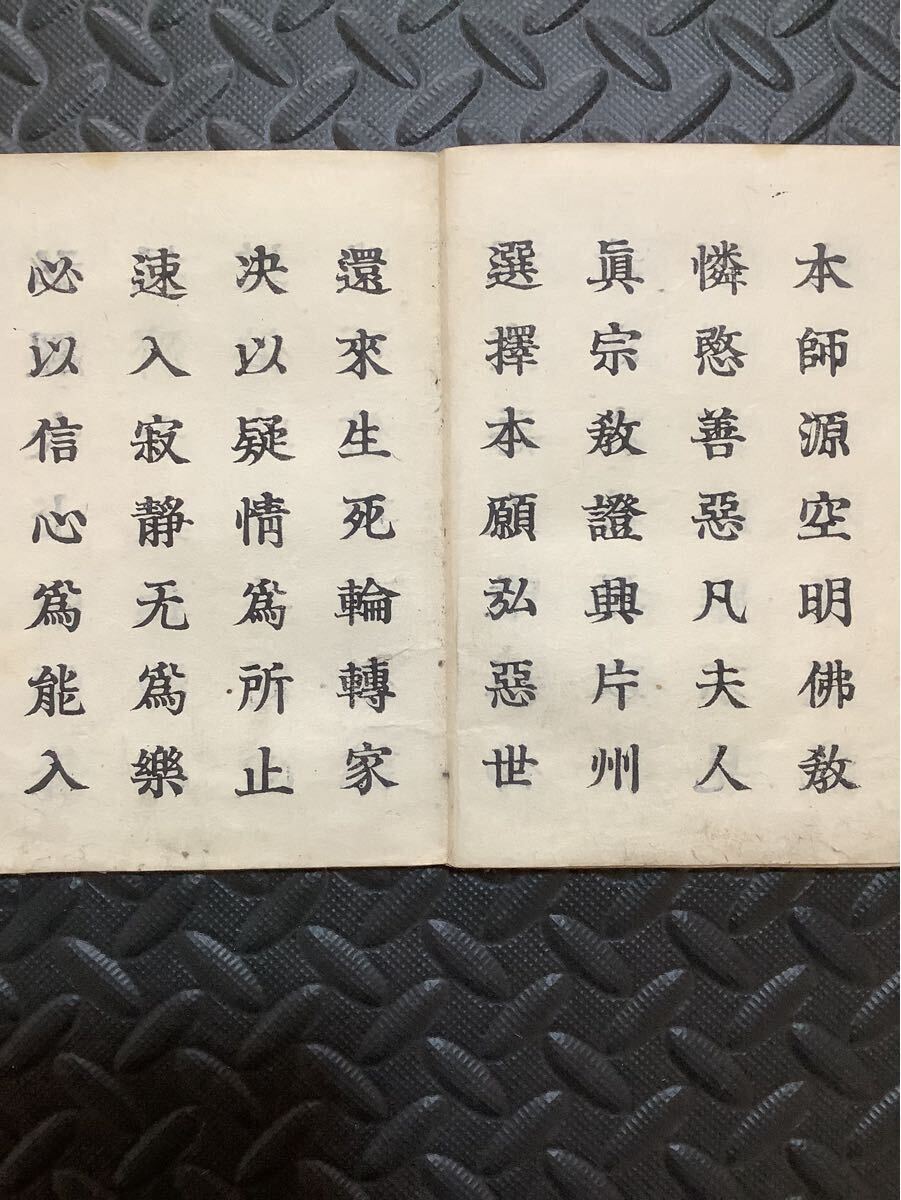 本師源空明佛敎
憐愍善惡凡夫人
眞宗敎證興片州
選擇本願弘惡世
還來生死輪轉家
决以疑情爲所止
速入寂靜无爲樂
必以信心爲能入